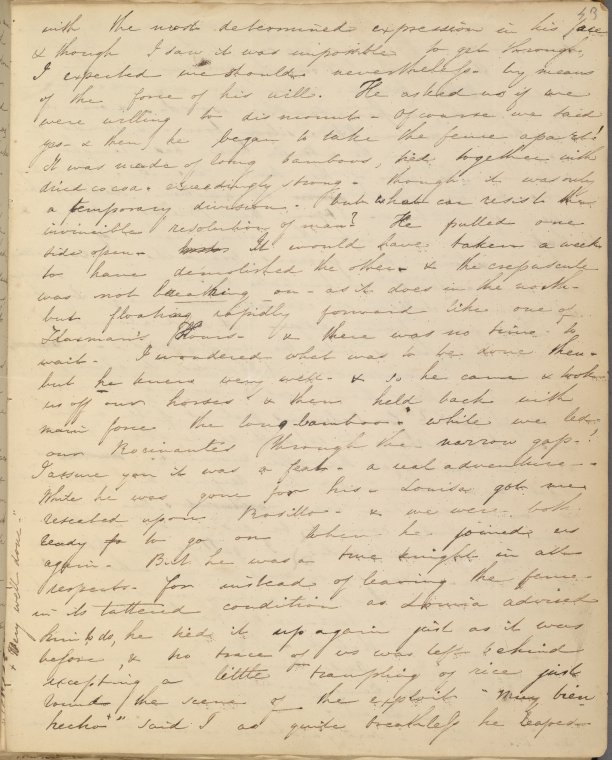 43
with the most determined expression in his face
& though I saw it was impossible to get through,
I expected we should nevertheless by means
of the force of his will. He asked us if we
were willing to dismount - Of course we said
yes - & then he began to take the fence apart!
It was made of long bamboos, tied together with
dried cocoa - exceedingly strong - though it was only
a temporary division. But what can resist the
invincible resolution of man? He pulled one
side open - It would have taken a week
to have demolished the other - & the crepuscule
was not on - as it does in the north -
but floating rapidly forward like one of
Flaxman's Hours - & there was no time to
wait - I wondered what was to be done then -
but he knew very well - & so he came & took
us off our horses & then held back with
main force the long bamboo - while we led
our Rocinantes through the narrow gap -!
I assure you it was a feat - a real adventure -
While he was gone for his - Louisa got me
reseated upon Rosillo - & we were both
ready to go on when he joined us
again - But he was a true knight in all
respects - for instead of leaving the fence
in its tattered condition as Louisa advised
him to do, he tied it up again just as it was
before, & no trace of us was left behind
excepting a little trampling of rice just
round the scene of the exploit "Muy bien
hecho*" said I as quite breathless he leaped
* Very well done -"